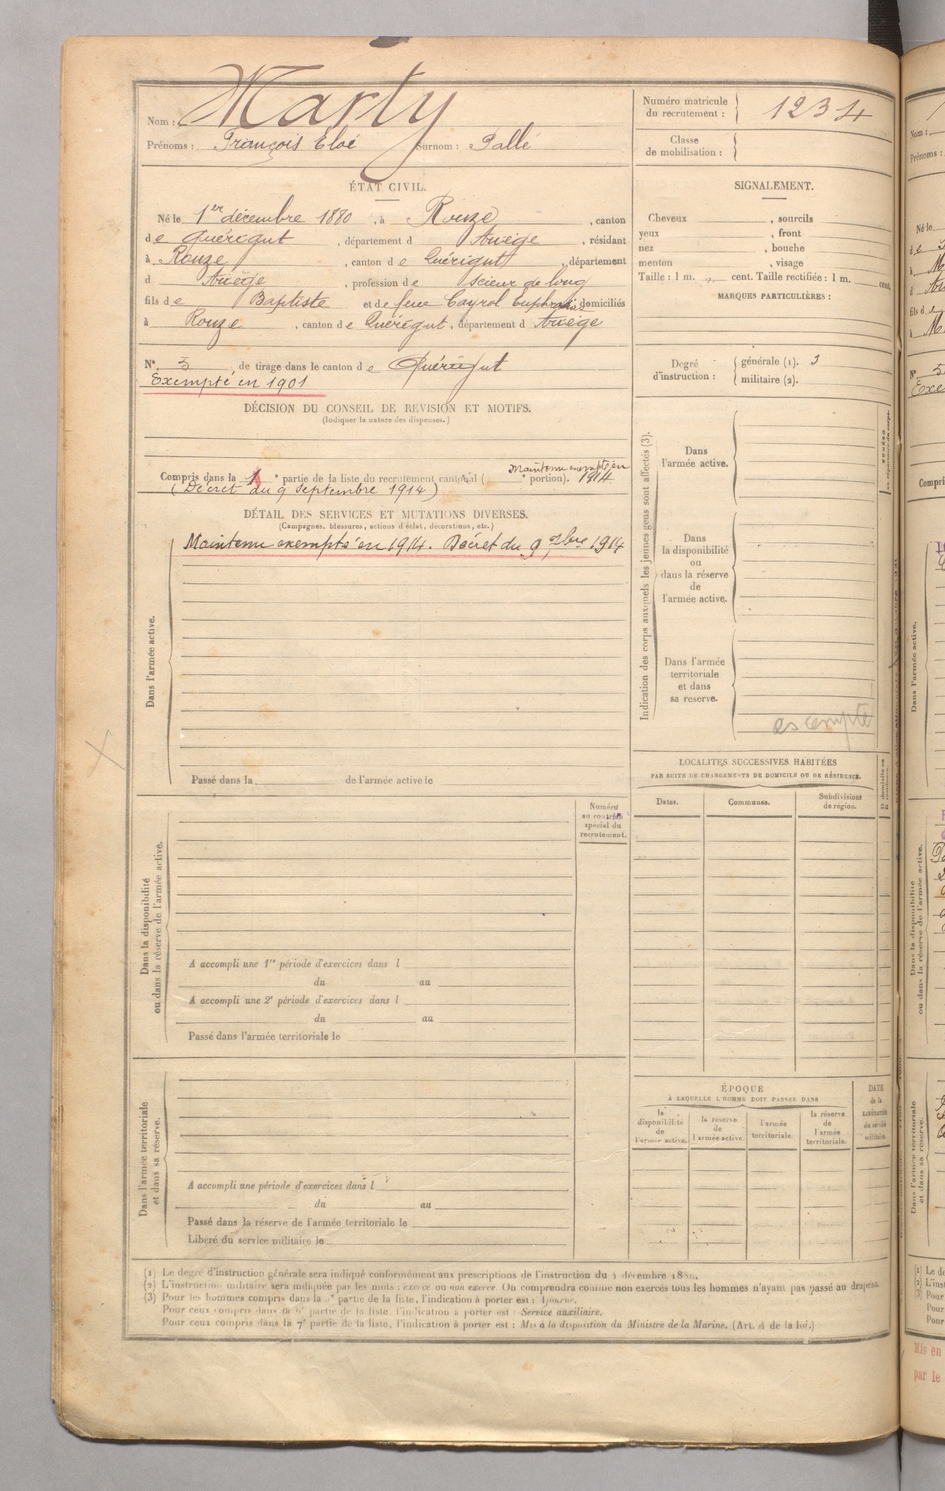 Nom : Marty
Prénoms : François Eloé Surnom : Pallé
Numéro matricule
du recrutement : 1234
Classe
de mobilisation :
ÉTAT CIVIL.
Né le 1er décembre 1880, à Rouze, canton
de Quérigut, département d Ariège, résidant
à Rouze, canton de Quérigut, département
d Ariège, profession de scieur de long
fils de Baptiste et de feue Cayrol domiciliés
à Rouze, canton de Quérigut, département d Ariège
N° 3 de tirage dans le canton de Quérigut
Exempté en 1901
DÉCISION DU CONSEIL DE REVISION ET MOTIFS.
(Indiquer la nature des dispenses.)
Maintenu exempté en
Compris dans la 1 e partie de la liste du recrutement cantonal ( e portion). 1914
(Décret du 9 Septembre 1914)
DÉTAIL DES SERVICES ET MUTATIONS DIVERSES.
(Campagnes, blessures, actions d'éclat, décorations, etc.)
Maintenu exempté en 1914. Décret du 9 7bre 1914
Dans l'armée active.
Passé dans la de l'armée active le
Numéro
au contrôle
spécial du
recrutement.
Dans la disponibilité
ou dans la réserve de l'armée active.
A accompli une 1re période d'exercices dans l
du au
A accompli une 2e période d'exercices dans l
du au
Passé dans l'armée territoriale le
Dans l'armée territoriale
et dans sa réserve.
A accompli une période d'exercices dans l
du au
Passé dans la réserve de l'armée territoriale le
Libéré du service militaire le
SIGNALEMENT.
Cheveux , sourcils
yeux , front
nez , bouche
menton , visage
Taille : 1 m. cent. Taille rectifiée : 1 m. cent.
MARQUES PARTICULIÈRES :
Degré
d'instruction :
générale (1). 3
militaire (2).
Indication des corps auxquels les jeunes gens sont affectés (3).
Dans
l'armée active.
Dans
la disponibilité
ou
dans la réserve
de
l'armée active.
Dans l'armée
territoriale
et dans
sa reserve.
exempté
LOCALITÉS SUCCESSIVES HABITÉES
PAR SUITE DE CHANGEMENTS DE DOMICILE OU DE RÉSIDENCE.
Dates. Communes. Subdivisions
de région.
ÉPOQUE
À LAQUELLE L'HOMME DOIT PASSER DANS
la
disponibilité
de
l'armée active.
la réserve
de
l'armée active.
l'armée
territoriale.
la réserve
de
l'armée
territoriale.
DATE
de la
libération
du service
militaire.
(1) Le degré d'instruction générale sera indiqué conformément aux prescriptions de l'instruction du 4 décembre 1889.
(2) L'instruction militaire sera indiquée par les mots : exercé ou non exercé. On comprendra comme non exercés tous les hommes n'ayant pas passé au drapeau.
(3) Pour les hommes compris dans la 5e partie de la liste, l'indication à porter est : Ajourné.
Pour ceux compris dans la 6e partie de la liste, l'indication à porter est : Service auxiliaire.
Pour ceux compris dans la 7e partie de la liste, l'indication à porter est : Mis à la disposition du Ministre de la Marine. (Art. 4 de la loi.)
Mis en
par le